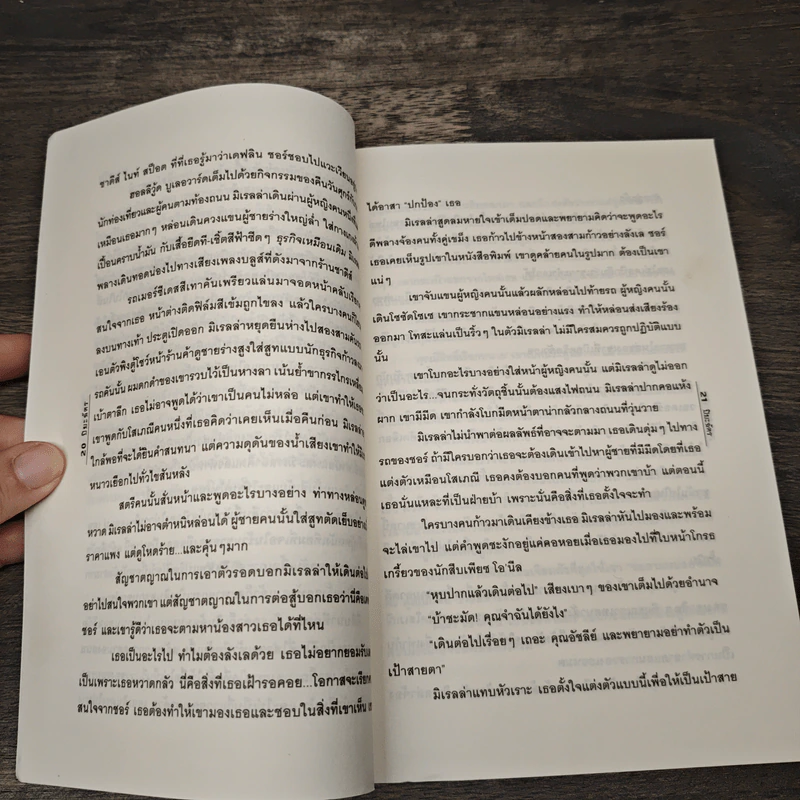 ซาดิส์ ไนท์ สป็อต ที่ที่เธอรู้มาว่าเดฟลิน ชอร์ชอบไปแวะเวียน
ฮอลลีวู้ด บูเลอวาร์ดเต็มไปด้วยกิจกรรมของคืนวันศุกร์
นักท่องเที่ยวและผู้คนตามท้องถนน มิเรลล่าเดินผ่านผู้หญิงคน
เหมือนเธอมากๆ หล่อนเดินควงแขนผู้ชายร่างใหญ่ล่ำ ใส่กางเกง
เปื้อนคราบน้ำมัน กับเสื้อยืด ที-เชิ้ตสีฟ้าซีดๆ ธุรกิจเหมือนเดิม
พลางเดินทอดน่องไปทางเสียงเพลงบลูส์ที่ดังมาจากร้านซาดิส์
รถเมอร์ซีเดสสีเทาคันเพรียวแล่นมาจอดหน้าคลับเรียก
สนใจจากเธอ หน้าต่างติดฟิล์มสีเข้มถูกไขลง แล้วใครบางคนก็
ลงบนทางเท้า ประตูเปิดออก มิเรลล่าหยุดยืนห่างไปสองสามคัน
เอนตัวพิงตู้โชว์หน้าร้านค้าดูชายร่างสูงใส่สูทแบบนักธุรกิจก้าวลง
รถคันนั้น ผมดกดำของเขารวบไว้เป็นหางลา เน้นย้ำขากรรไกรเหลี่ยม
เบ้าตาลึก เธอไม่อาจพูดได้ว่าเขาเป็นคนไม่หล่อ แต่เขาทำให้เธอ
เขาพูดกับโสเภณีคนหนึ่งที่เธอคิดว่าเคยเห็นเมื่อคืนก่อน มิเรลล่า
ใกล้พอที่จะได้ยินคำสนทนา แต่ความดุดันของน้ำเสียงเขาทำให้
หนาวเยือกไปทั่วไขสันหลัง
สตรีคนนั้นสั่นหน้าและพูดอะไรบางอย่าง ท่าทางหล่อน
หวาด มิเรลล่าไม่อาจตำหนิหล่อนได้ ผู้ชายคนนั้นใส่สูทตัดเย็บอย่าง
ราคาแพง แต่ดูโหดร้าย...และคุ้นๆมาก
สัญชาตญาณในการเอาตัวรอดบอกมิเรลล่าให้เดินต่อไป
อย่าไปสนใจพวกเขา แต่สัญชาตญาณในการต่อสู้บอกเธอว่านี่คือ
ชอร์ และเขารู้ดีว่าเธอจะตามหาน้องสาวเธอได้ที่ไหน
เธอเป็นอะไรไป ทำไมต้องลังเลด้วย เธอไม่อยากยอมรับ
เป็นเพราะเธอหวาดกลัว นี่คือสิ่งที่เธอเฝ้ารอคอย...โอกาสจะเรียก
สนใจจากชอร์ เธอต้องทำให้เขามองเธอและชอบในสิ่งที่เขาเห็น
20 ปิยะฉัตร
ได้อาสา "ปกป้อง" เธอ
มิเรลล่าสูดลมหายใจเข้าเต็มปอดและพยายามคิดว่าจะพูดอะไร
ดีพลางจ้องคนทั้งคู่เขม็ง เธอก้าวไปข้างหน้าสองสามก้าวอย่างลังเล ชอร์
เธอเคยเห็นรูปเขาในหนังสือพิมพ์ เขาดูคล้ายคนในรูปมาก ต้องเป็นเขา
แน่ๆ
เขาจับแขนผู้หญิงคนนั้นแล้วผลักหล่อนไปท้ายรถ ผู้หญิงคนนั้น
เดินโซซัดโซเซ เขากระชากแขนหล่อนอย่างแรง ทำให้หล่อนส่งเสียงร้อง
ออกมา โทสะแล่นเป็นริ้วๆ ในตัวมิเรลล่า ไม่มีใครสมควรถูกปฏิบัติแบบ
นั้น
เขาโบกอะไรบางอย่างใส่หน้าผู้หญิงคนนั้น แต่มิเรลล่าดูไม่ออก
ว่าเป็นอะไร...จนกระทั่งวัตถุชิ้นนั้นต้องแสงไฟถนน มิเรลล่าปากคอแห้ง
ผาก เขามีมีด เขากำลังโบกมีดหน้าตาน่ากลัวกลางถนนที่วุ่นวาย
มิเรลล่าไม่นำพาต่อผลลัพธ์ที่อาจจะตามมา เธอเดินดุ่มๆ ไปทาง
รถของชอร์ ถ้ามีใครบอกว่าเธอจะต้องเดินเข้าไปหาผู้ชายที่มีมีดโดยที่เธอ
แต่งตัวเหมือนโสเภณี เธอคงต้องบอกคนที่พูดว่าพวกเขาบ้า แต่ตอนนี้
เธอนั่นแหละที่เป็นฝ่ายบ้า เพราะนั่นคือสิ่งที่เธอตั้งใจจะทำ
ใครบางคนก้าวมาเดินเคียงข้างเธอ มิเรลล่าหันไปมองและพร้อม
จะไล่เขาไป แต่คำพูดชะงักอยู่แค่คอหอยเมื่อเธอมองไปที่ใบหน้าโกรธ
เกรี้ยวของนักสืบเพียซ โอ'นีล
"หุบปากแล้วเดินต่อไป" เสียงเบาๆ ของเขาเต็มไปด้วยอำนาจ
"บ้าชะมัด! คุณจำฉันได้ยังไง"
"เดินต่อไปเรื่อยๆ เถอะ คุณอัชลีย์ และพยายามอย่าทำตัวเป็น
เป้าสายตา"
มิเรลล่าแทบหัวเราะ เธอตั้งใจแต่งตัวแบบนี้เพื่อให้เป็นเป้าสาย
21 ปิยะฉัตร